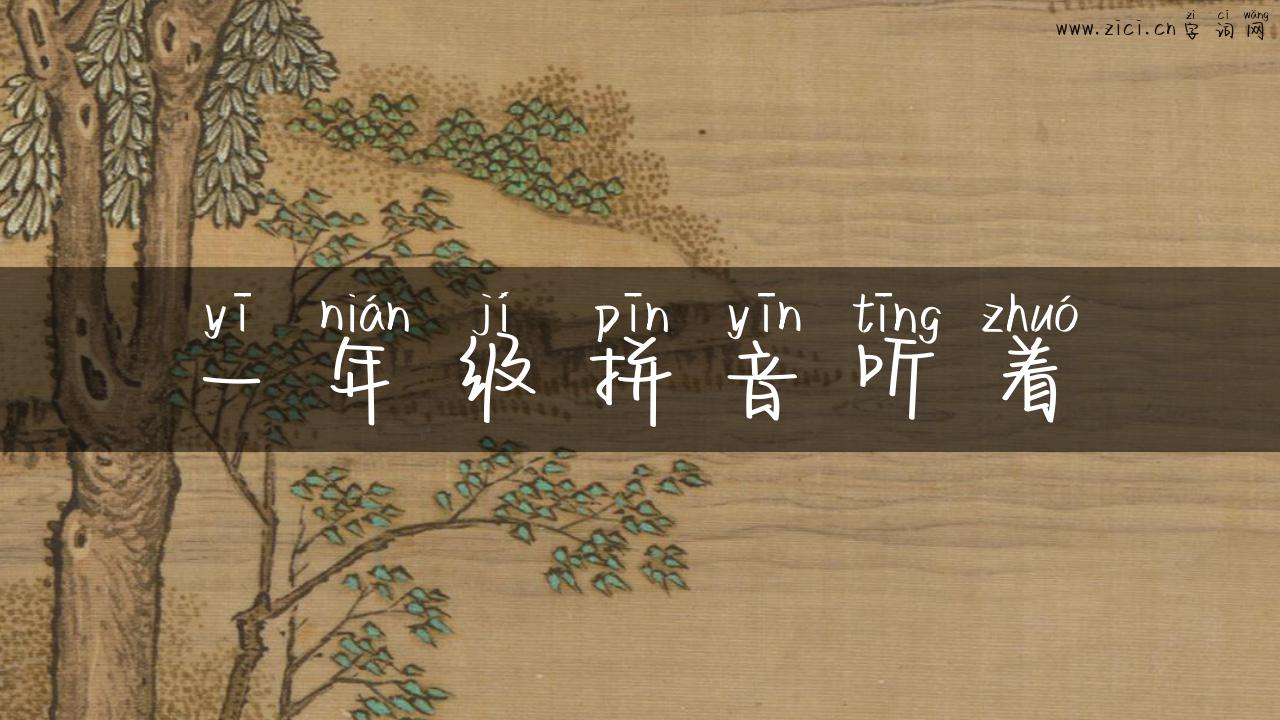 zì cí wǎng
www.zici.cn 字词网
yī nián jí pīn yīn tīng zhuó
一年级拼音听着